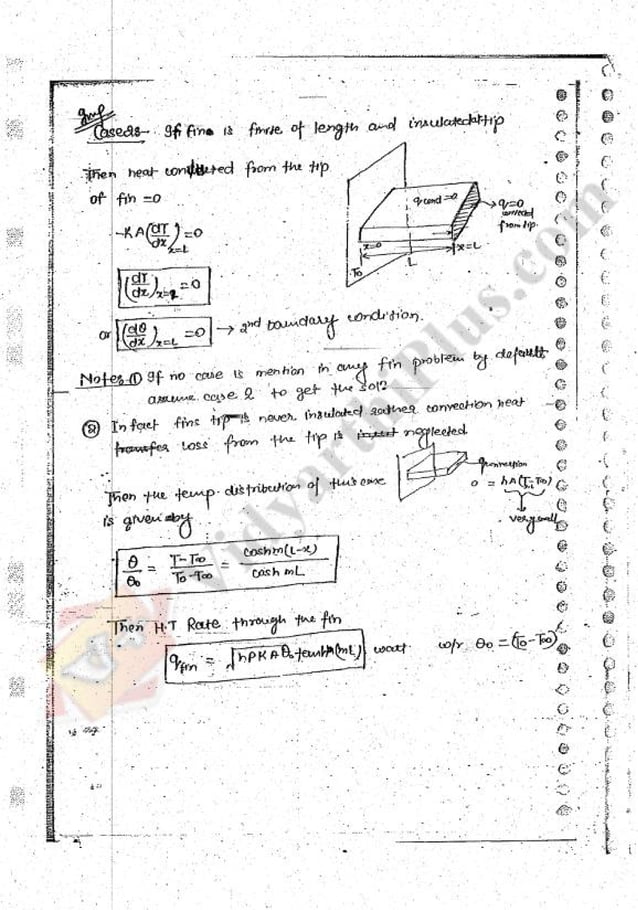 Imp
Case 2:- If fin is finite of length and insulated at tip
Then heat conducted from the tip
of fin =0
-KA(dT/dx)x=L =0
q cond =0
q=0
convected
from tip.
x=0
x=L
To
L
(dT/dx)x=L =0
or (dθ/dx)x=L =0 → 2nd boundary condition.
Notes ① If no case is mention in any fin problem by default
assume case 2 to get the sol?
② In fact fins tip is never insulated rather convection heat
transfer loss from the tip is neglected
qconvection
0 = hA(T-T∞)
very small
Then the temp. distribution of this case
is given by
θ/θo = T-T∞/To-T∞ = cosh m(L-x)/cosh mL
Then H.T Rate through the fin
qfin = √hPKA θo tanh(mL) watt w/r θo = (To-T∞)
VidyarthiPlus.com